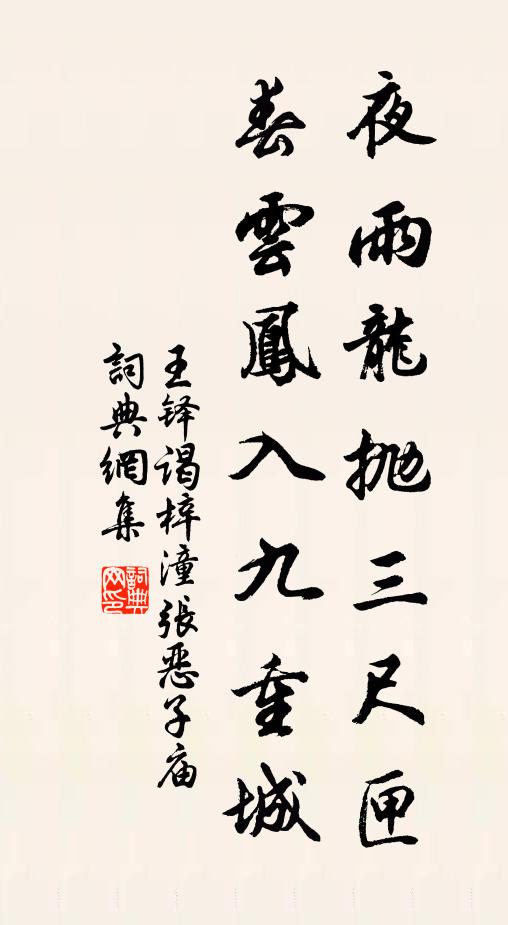 夜雨龍抛三尺匣
春雲鳳入九重城
王铎谒梓潼張惡子庙
詞典網集
詞典網印